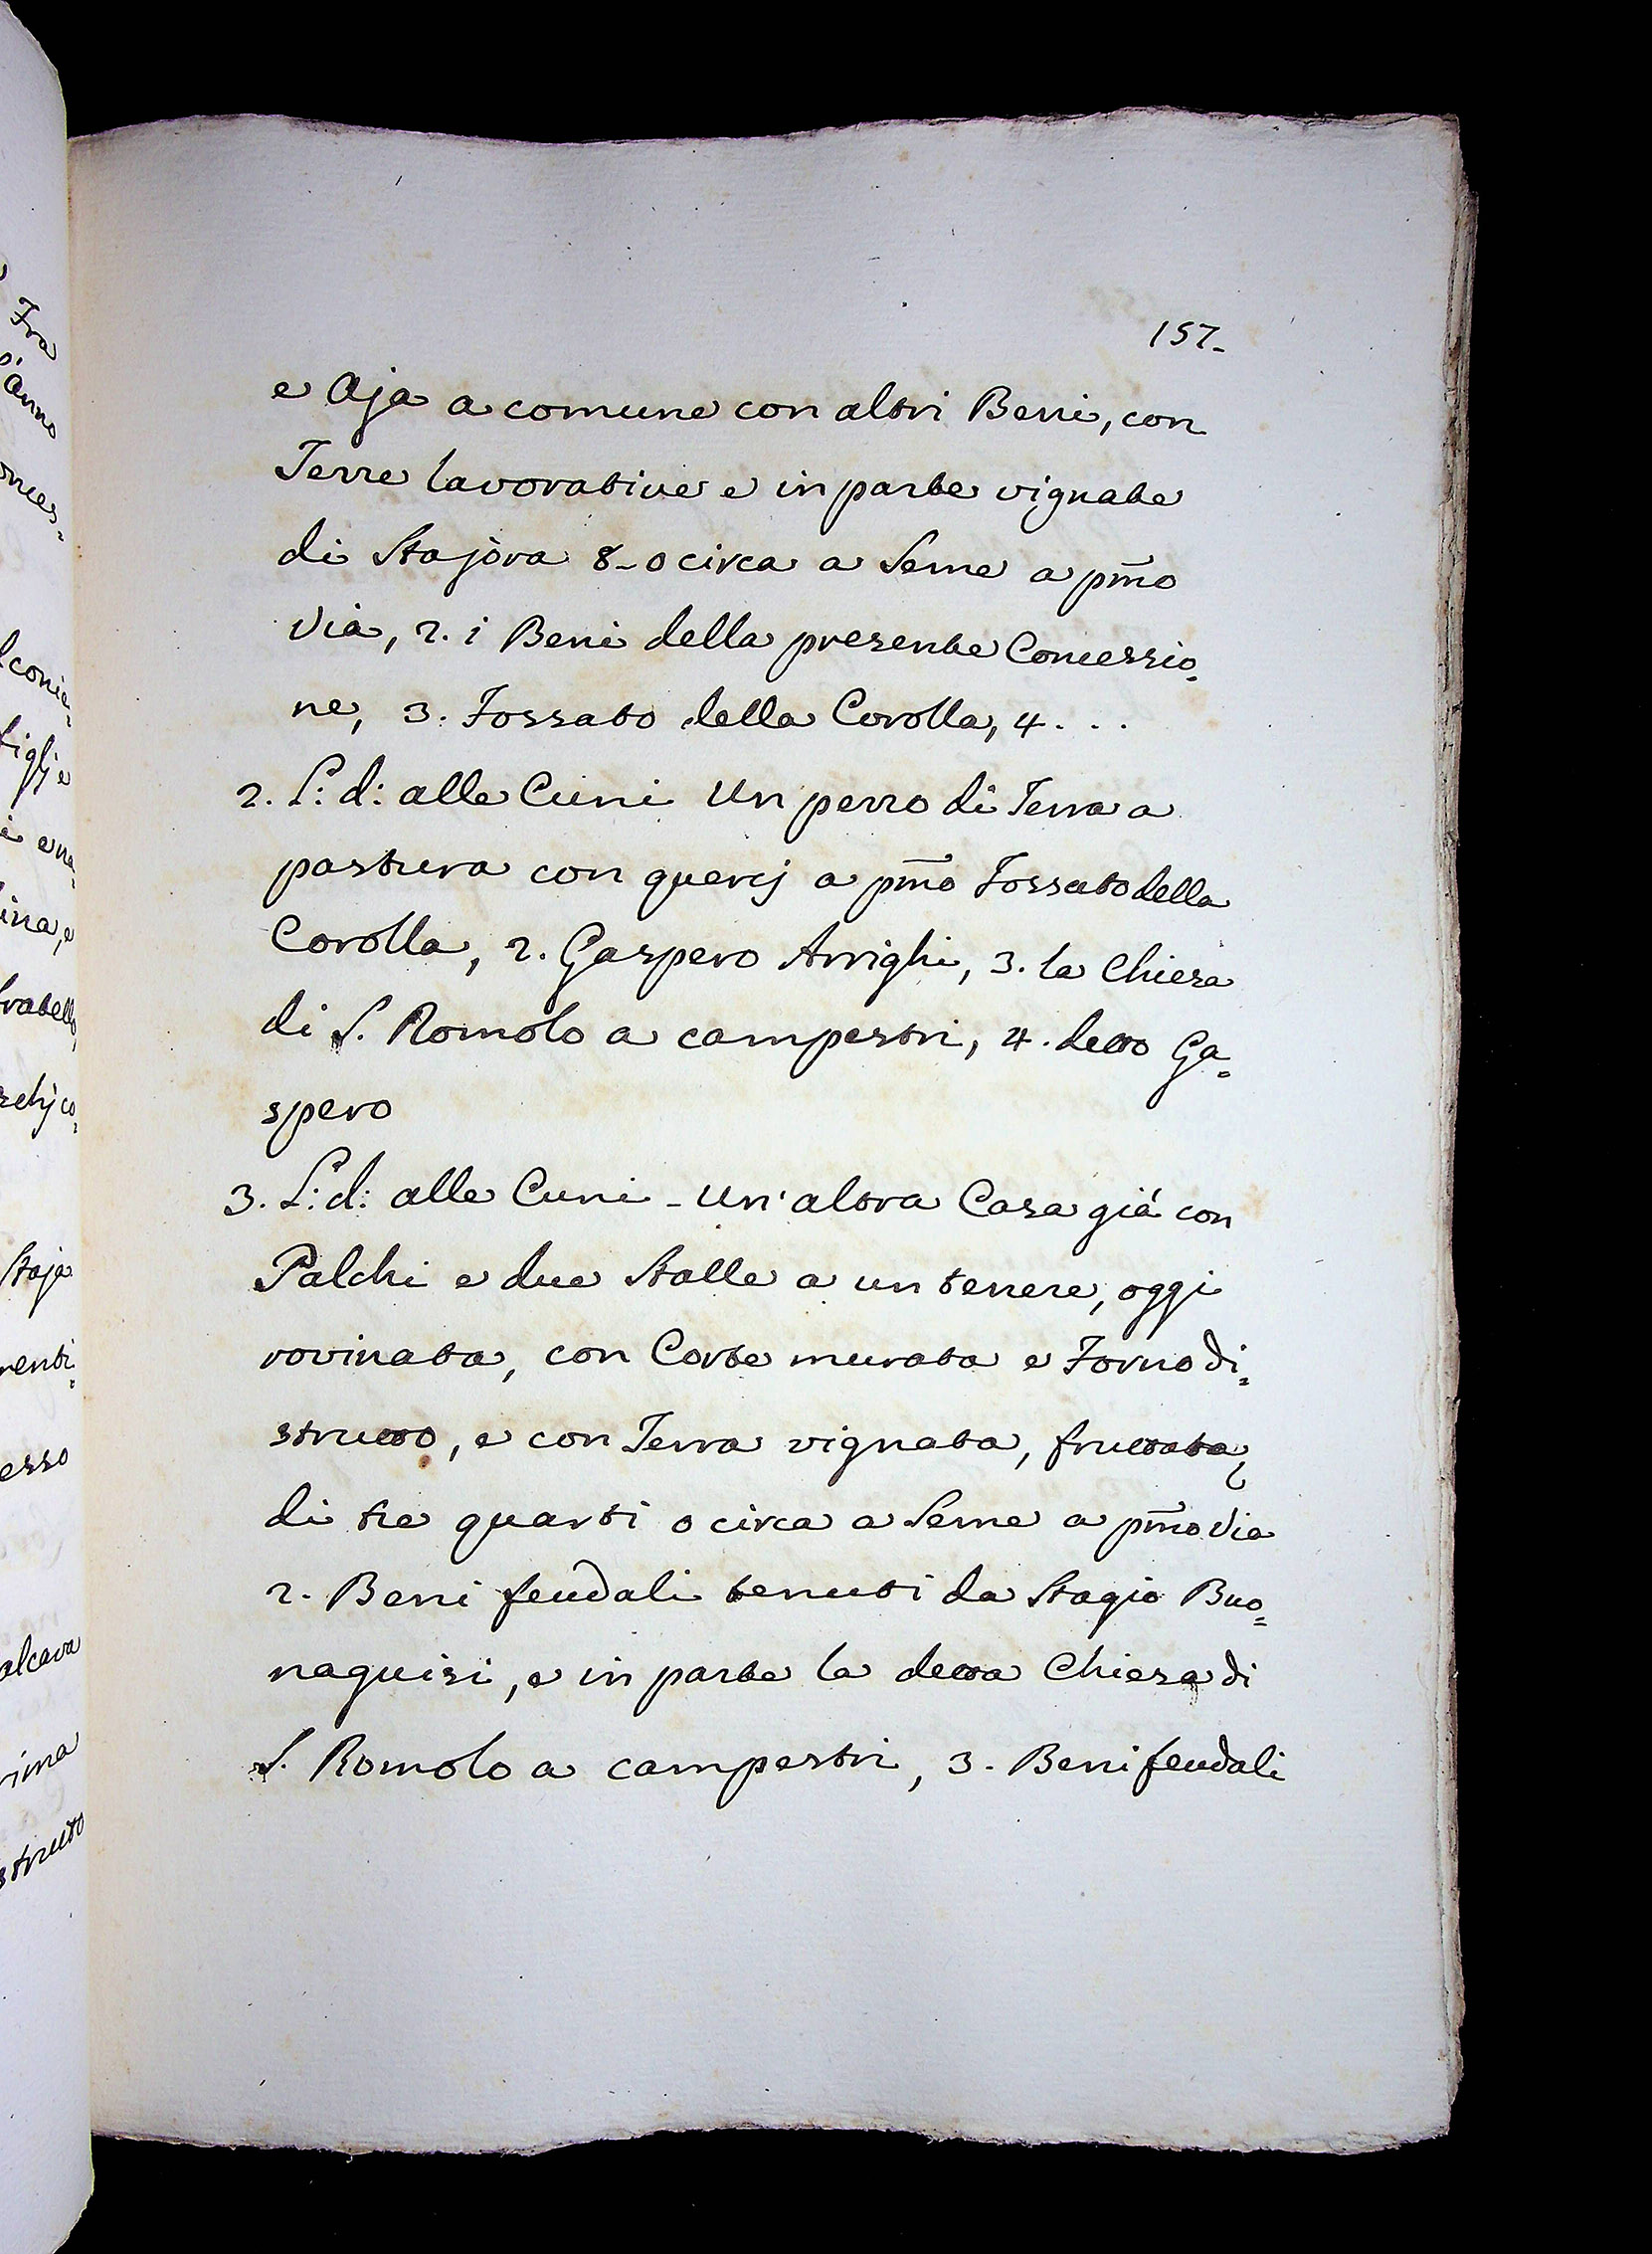 Fra
anno
onces=
conie=
figlj e
i ene=
ina, e
fratello,
schj co=
Staja
renti=
esso
alcava
rima
strutto
157.
e Aja a comune con altri Beni, con
Terre lavorative e in parte vignate
di Stajora 8-0 circa a Seme a pmo
Via, 2. i Beni della presente Concessio=
ne, 3. Fossato della Corolla, 4 . . .
2. L: d: alle Cuni Un pezzo di Terra a
pastura con quercj a pmo Fossato della
Corolla, 2. Gaspero Arrighi, 3. la Chiesa
di S. Romolo a campestri, 4. detto Ga=
spero
3. L: d: alle Cuni - Un' altra Casa già con
Palchi e due Stalle a un tenere, oggi
rovinata, con Corte murata e Forno di=
strutto, e con Terra vignata, fruttata,
di tre quarti o circa a Seme a pmo Via
2. Beni feudali tenuti da Stagio Buo=
naguisi, e in parte la detta Chiesa di
S. Romolo a campestri, 3. Beni feudali